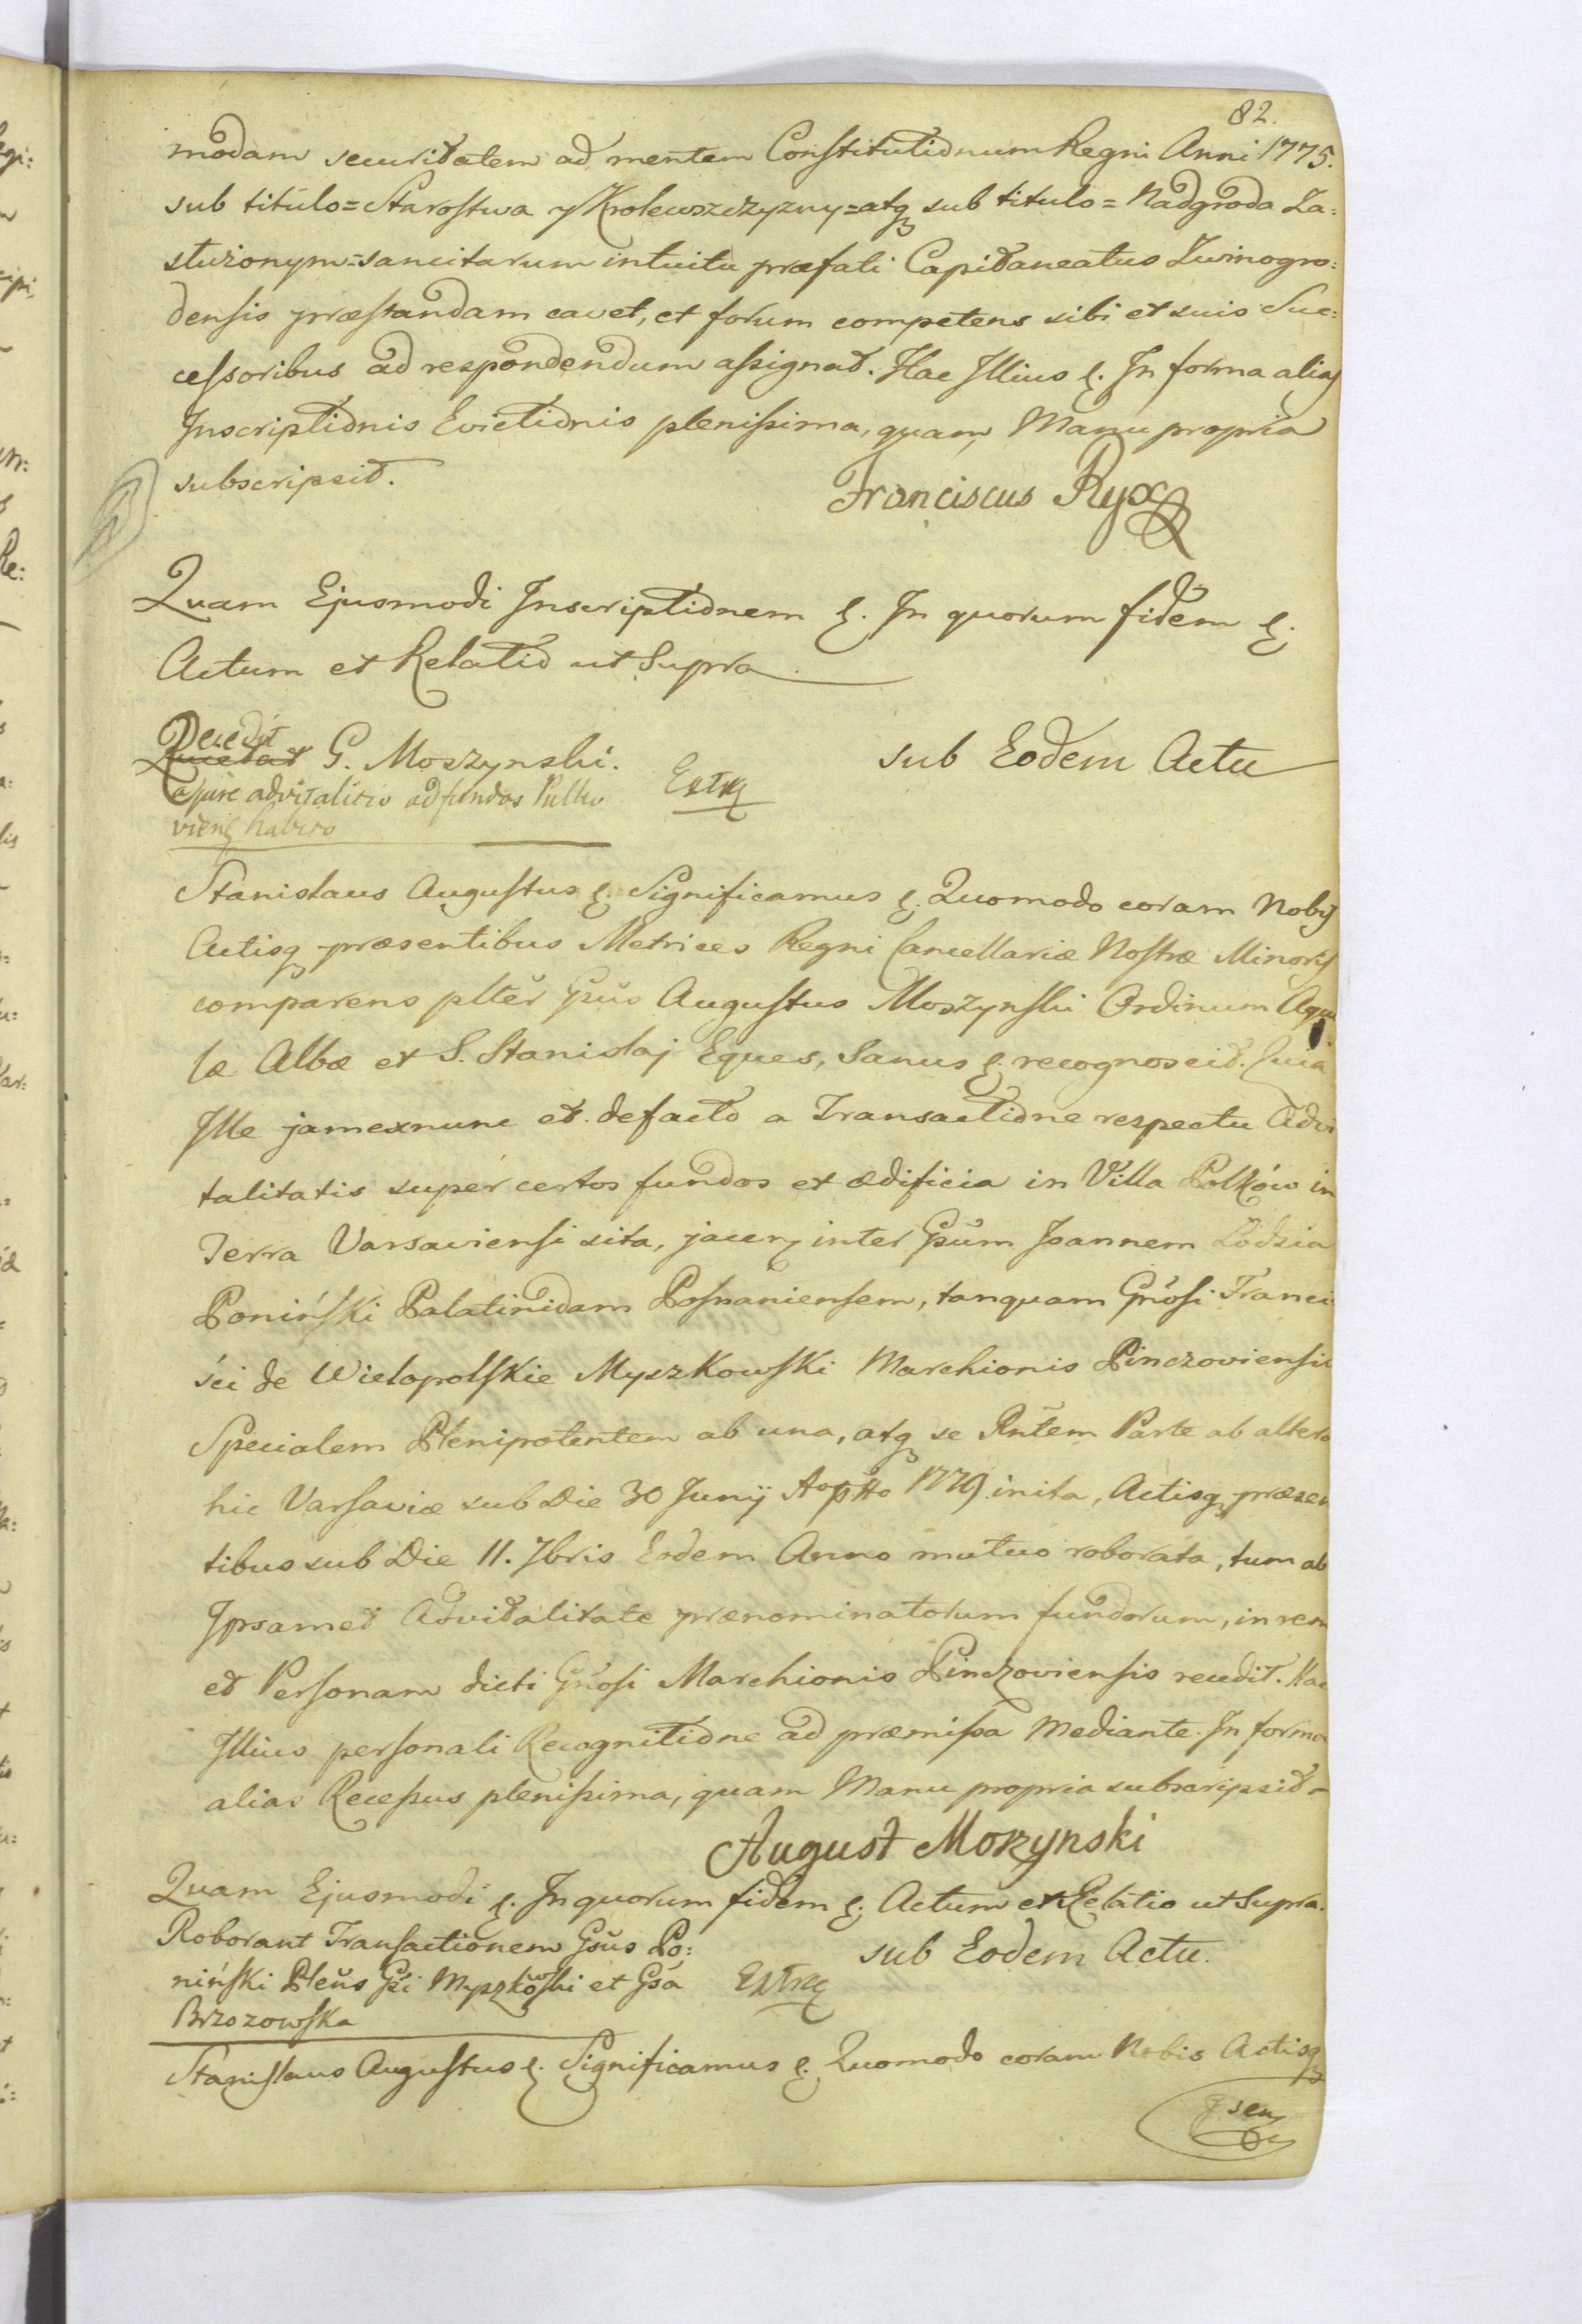 82.
modam securitatem ad mentem Constitutionum Regni Anni 1775.
sub titulo = Starostwa y Krolewszczyzny = atq sub titulo = Nadgroda Za:
służonym = sancitarum intuitu præfati Capitaneatus Zwinogro:
densis præstandam cavet, et forum competens sibi et suis Suc:
cessoribus ad respondendum assignat. Hac Illius &. In forma alias
Inscriptionis Evictionis plenissima, quam Manu propria
subscripsit.
Franciscus Ryx
Quam Ejusmodi Inscriptionem &. In quorum fidem &.
Actum et Relatio ut Supra
Recedit G. Moszynski.
a jure advitalitio ad fundos Pulko
vien habito
Extr
sub Eodem Actu
Stanislaus Augustus &. Significamus &. Quomodo coram Nobis
Actisq præsentibus Metrices Regni Cancellariæ Nostræ Minoris
comparens plter Gsus Augustus Moszynski Ordinum Aqui
læ Albæ et S. Stanislaj Eques, Sanus &. recognoscit. Quia
Ille jamexnunc et defacto a Transactione respectu Advi
talitatis super certos fundos et ædificia in Villa Polków in
Terra Varsaviensi sita, jacen inter Gsum Joannem Łodzia
Poniński Palatinidam Posnaniensem, tanquam Gnosi Franci
sci de Wielopolskie Myszkowski Marchionis Pinczoviensis
Specialem Plenipotentem ab una, atq se Rntem Parte ab altera
hic Varsaviæ sub Die 30 Junij Aoptto 1779. inita, Actisq præsen
tibus sub Die 11. 7bris Eodem Anno mutuo roborata, tum ab
Ipsamet Advitalitate prænominatorum fundorum, in rem
et Personam dicti Gnosi Marchionis Pinczoviensis recedit. Hac
Illius personali Recognitione ad præmissa Mediante. In forma
alias Recessus plenissima, quam Manu propria subscripsit
August Moszynski
Quam Ejusmodi &. In quorum fidem &. Actum et Relatio ut Supra.
Roborant Transactionem Gsus Po:
niński Plenus Gsi Myszkowski et Gsa
Brzozowska
Extr
sub Eodem Actu.
Stanislaus Augustus &. Significamus &. Quomodo coram Nobis Actisq